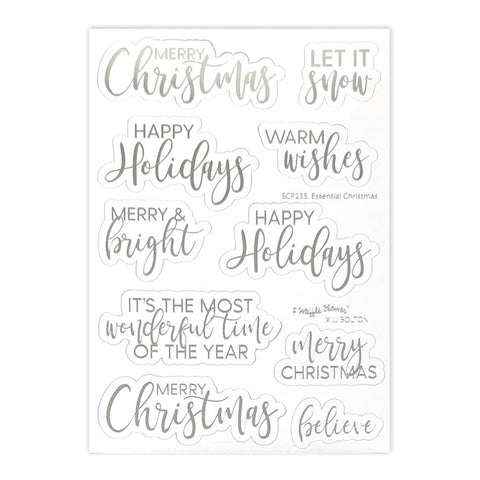 MERRY
Christmas
LET IT
snow
HAPPY
Holidays
WARM
wishes
SCP235 Essential Christmas
MERRY &
bright
HAPPY
Holidays
IT'S THE MOST
wonderful time
OF THE YEAR
BOLTON
merry
CHRISTMAS
MERRY
Christmas
believe